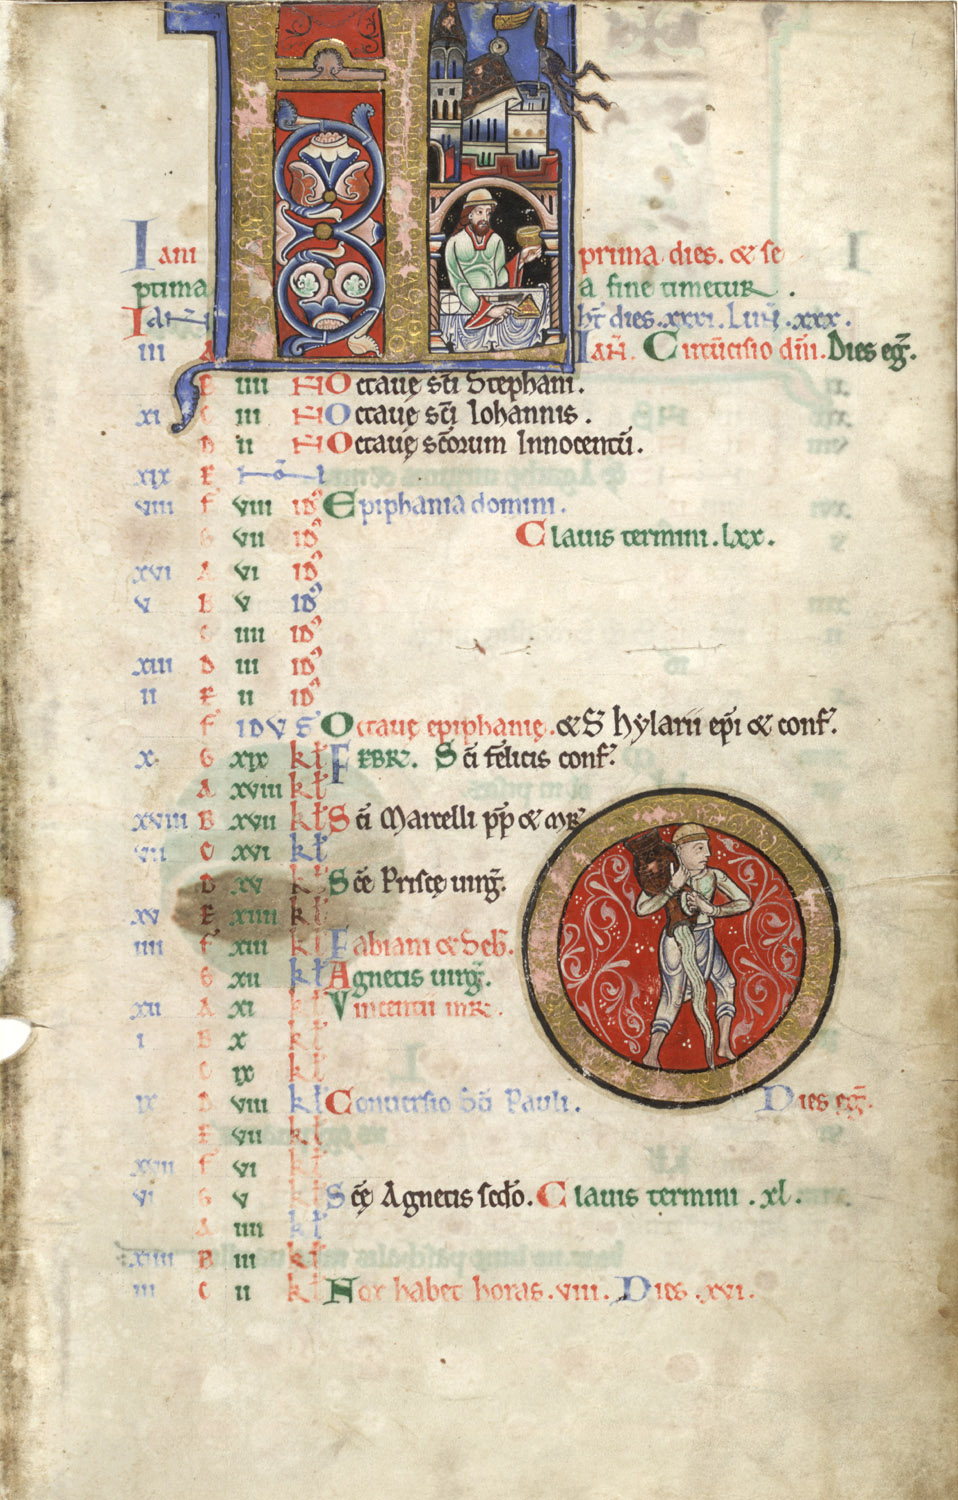 Iani prima dies. & se
ptima a fine timetur .
Ian̄ h̄t dies .xxxi. Lun̄ .xxx.
iii A Ian̄. Circūcisio dn̄i. Dies eḡ.
B iiii N Octauę sc̄i Stephani.
xi C iii N Octauę sc̄i Iohannis .
D ii N Octauę sc̄orum Innocentū.
xix E
viii F viii idꝰ Epiphania domini.
G vii idꝰ Clauis termini .lxx.
xvi A vi idꝰ
v B v idꝰ
C iiii idꝰ
xiii D iii idꝰ
ii E ii idꝰ
F IDVS Octauę epiphanię. & S̄ hylarii ep̄i & conf̄.
x G xix kł Febr̄. Sc̄i felicis conf̄.
A xviii kł
xviii B xvii kł Sc̄i Marcelli pp̄ & mr̄
vii C xvi kł
D xv kł Sc̄ę Priscę uirḡ.
xv E xiiii kł
iiii F xiii kł Fabiani & Seb̄.
G xii kł Agnetis uirḡ.
xii A xi kł Vincentii mr̄ .
i B x kł
C ix kł
ix D viii kł Conuersio sc̄i Pauli. Dies eḡ.
E vii kł
xvii F vi kł
vi G v kł Sc̄ę Agnetis sed̄o. Clauis termini .xl.
A iiii kł
xiiii B iii kł
iii C ii kł Nox habet horas .viii. Dies .xvi.